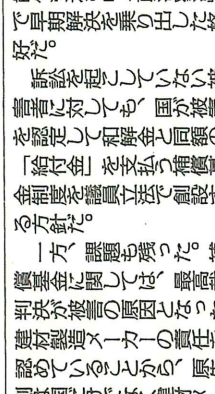 で早期解決を乗り出した格
好だ。
訴訟を起こしていない被
害者に対しても、国が被害
を認定して和解金と同額の
「給付金」を支払う補償基
金制度を議員立法で創設す
る方針だ。
一方、課題も残った。補
償基金に関しては、最高裁
判決が被害の原因となった
建材製造メーカーの責任
認めていることから、原